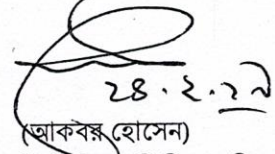 ২৪.২.২১
(আকবর হোসেন)